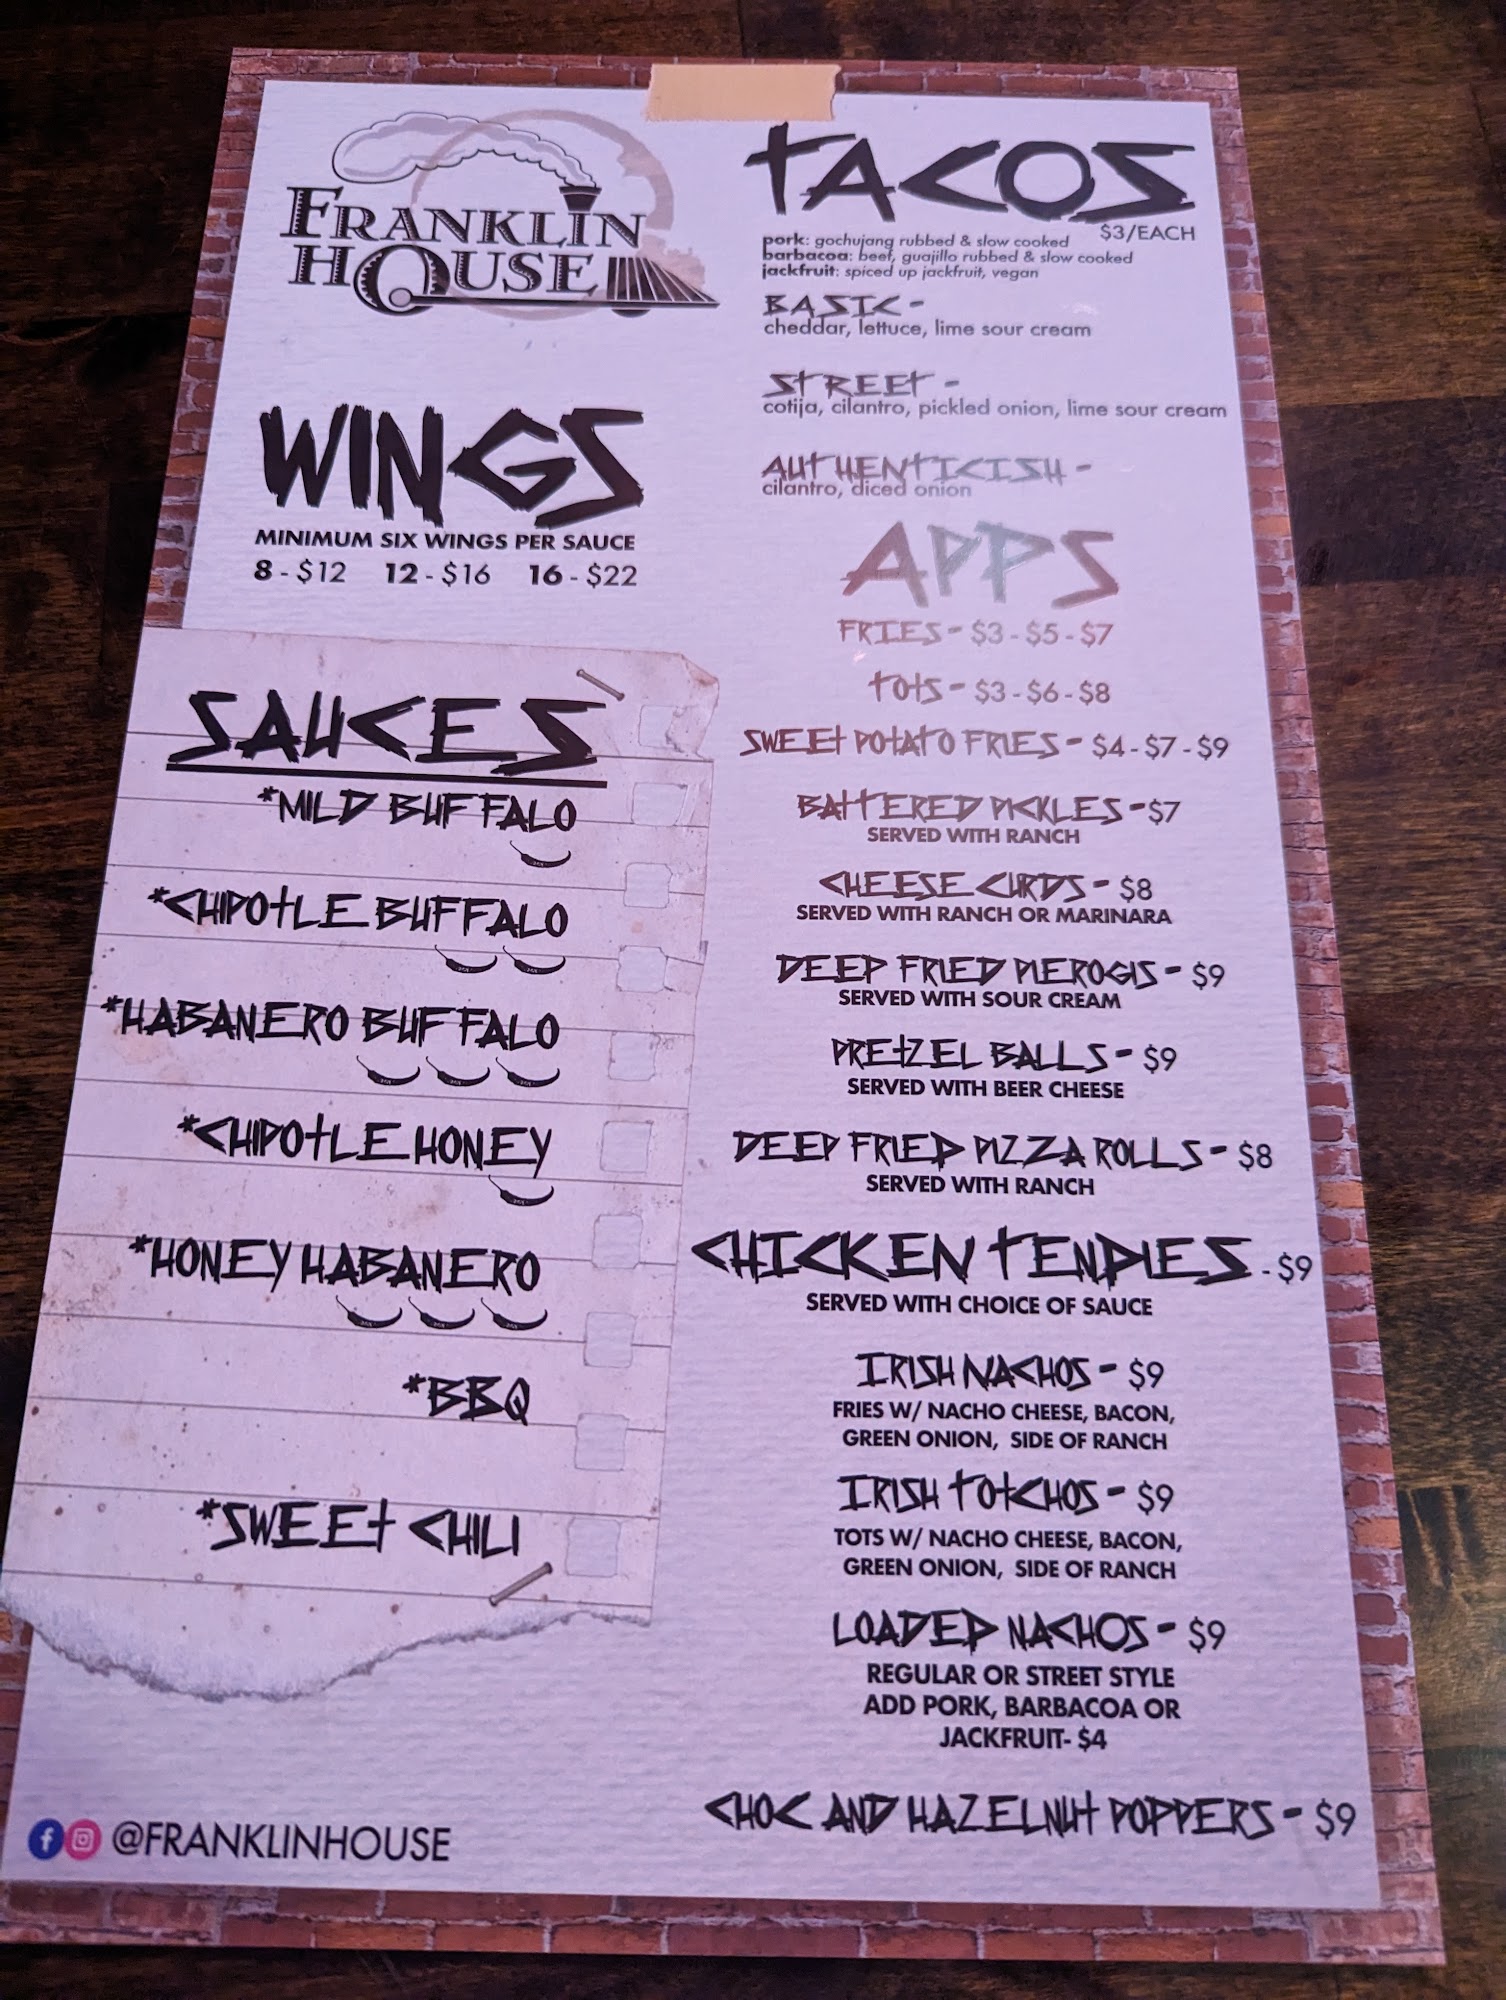 FRANKLIN
HOUSE
WINGS
MINIMUM SIX WINGS PER SAUCE
8 - $12 12 - $16 16 - $22
SAUCES
*MILD BUFFALO
*CHIPOTLE BUFFALO
*HABANERO BUFFALO
*CHIPOTLE HONEY
*HONEY HABANERO
*BBQ
*SWEET CHILI
@FRANKLINHOUSE
TACOS
$3/EACH
pork: gochujang rubbed & slow cooked
barbacoa: beef, guajillo rubbed & slow cooked
jackfruit: spiced up jackfruit, vegan
BASIC -
cheddar, lettuce, lime sour cream
STREET -
cotija, cilantro, pickled onion, lime sour cream
AUTHENTICISH -
cilantro, diced onion
APPS
FRIES - $3 - $5 - $7
TOTS - $3 - $6 - $8
SWEET POTATO FRIES - $4 - $7 - $9
BATTERED PICKLES - $7
SERVED WITH RANCH
CHEESE CURDS - $8
SERVED WITH RANCH OR MARINARA
DEEP FRIED PIEROGIS - $9
SERVED WITH SOUR CREAM
PRETZEL BALLS - $9
SERVED WITH BEER CHEESE
DEEP FRIED PIZZA ROLLS - $8
SERVED WITH RANCH
CHICKEN TENDIES - $9
SERVED WITH CHOICE OF SAUCE
IRISH NACHOS - $9
FRIES W/ NACHO CHEESE, BACON,
GREEN ONION, SIDE OF RANCH
IRISH TOTCHOS - $9
TOTS W/ NACHO CHEESE, BACON,
GREEN ONION, SIDE OF RANCH
LOADED NACHOS - $9
REGULAR OR STREET STYLE
ADD PORK, BARBACOA OR
JACKFRUIT- $4
CHOC AND HAZELNUT POPPERS - $9